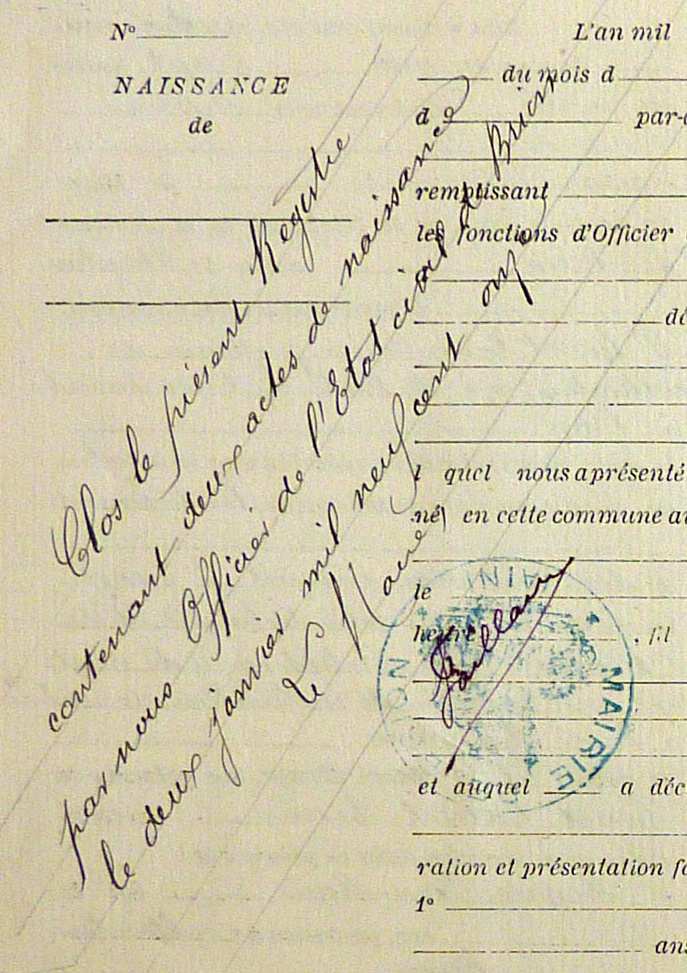 Nº
NAISSANCE
de
Clos le présent Registre
contenant deux actes de naissance
par nous Officier de l'Etat civil de Brion
le deux janvier mil neuf cent onze
Le Maire
L'an mil
du mois d
d par-
remplissant
les fonctions d'Officier
dé
l quel nous a présenté
né en cette commune au
le
heure , fil
MAIRIE
et auquel a déc
ration et présentation fa
1º
ans